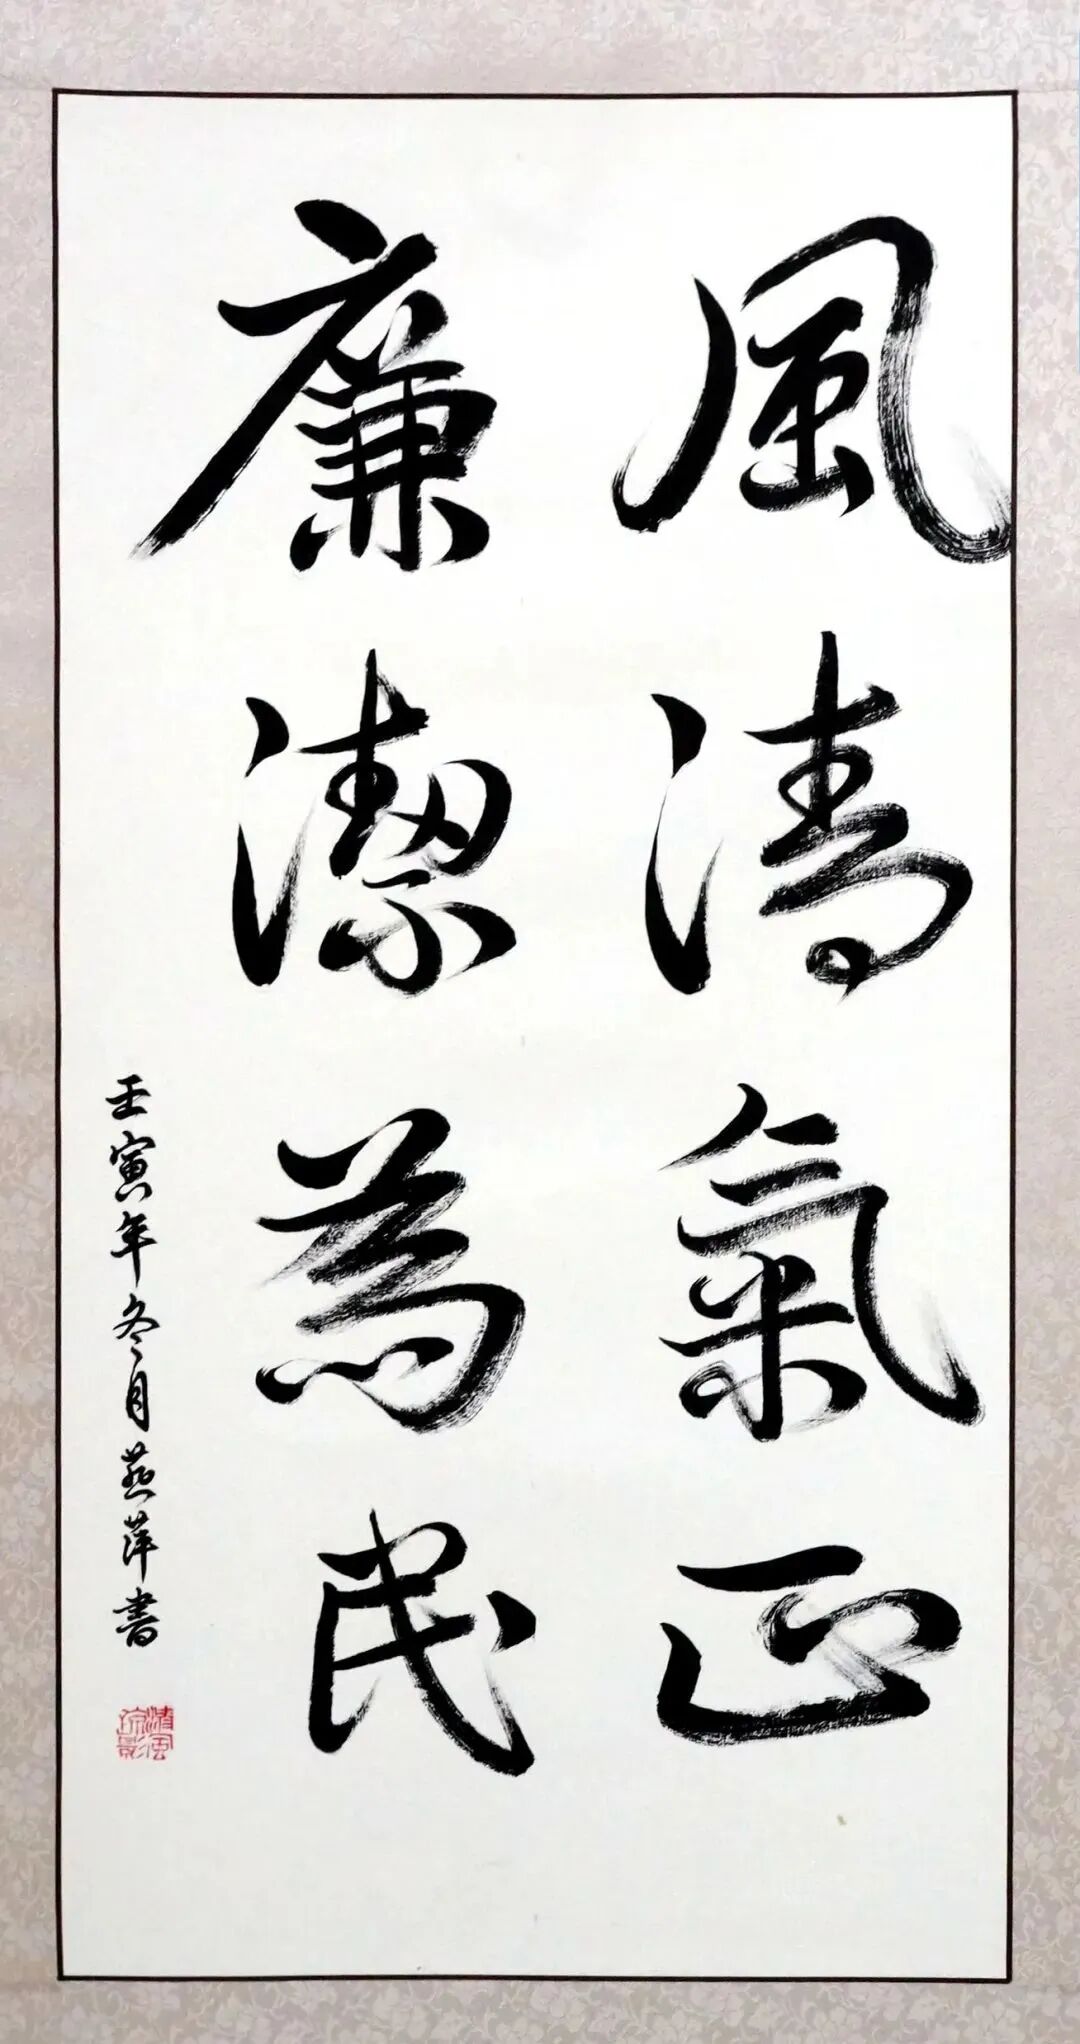 風清氣正
廉潔為民
壬寅年冬月燕萍書
清風